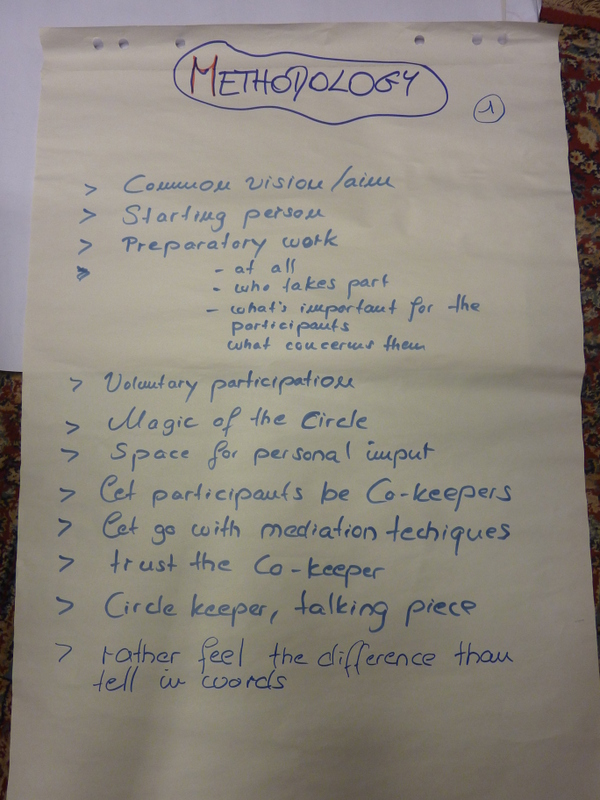 METHODOLOGY
1
> Common vision/aim
> Starting person
> Preparatory work
> - at all
- who takes part
- what's important for the
participants
what concerns them
> Voluntary participation
> Magic of the Circle
> Space for personal imput
> Let participants be Co-keepers
> Let go with mediation techiques
> trust the Co-keeper
> Circle keeper, talking piece
> rather feel the difference than
tell in words